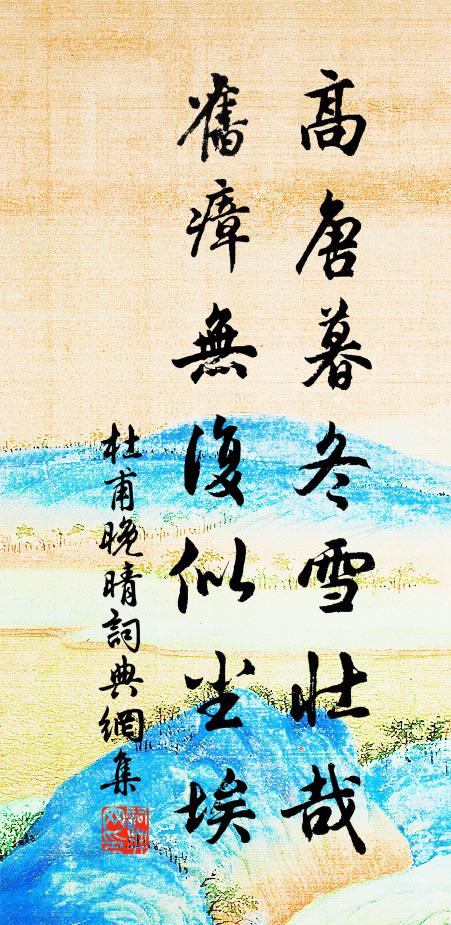 高唐暮冬雪壯哉
舊瘴無復似尘埃
杜甫晚晴詞典網集